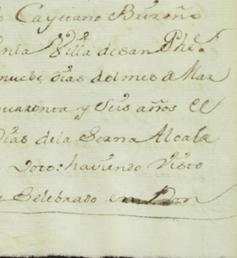 Cayetano Bureño
enla Villa de san Phe.
nuebe Dias del mes de Mar
quarenta y Seis años El
Dias dela Serna Alcala
Doto: haviendo Visto
Selebrado en